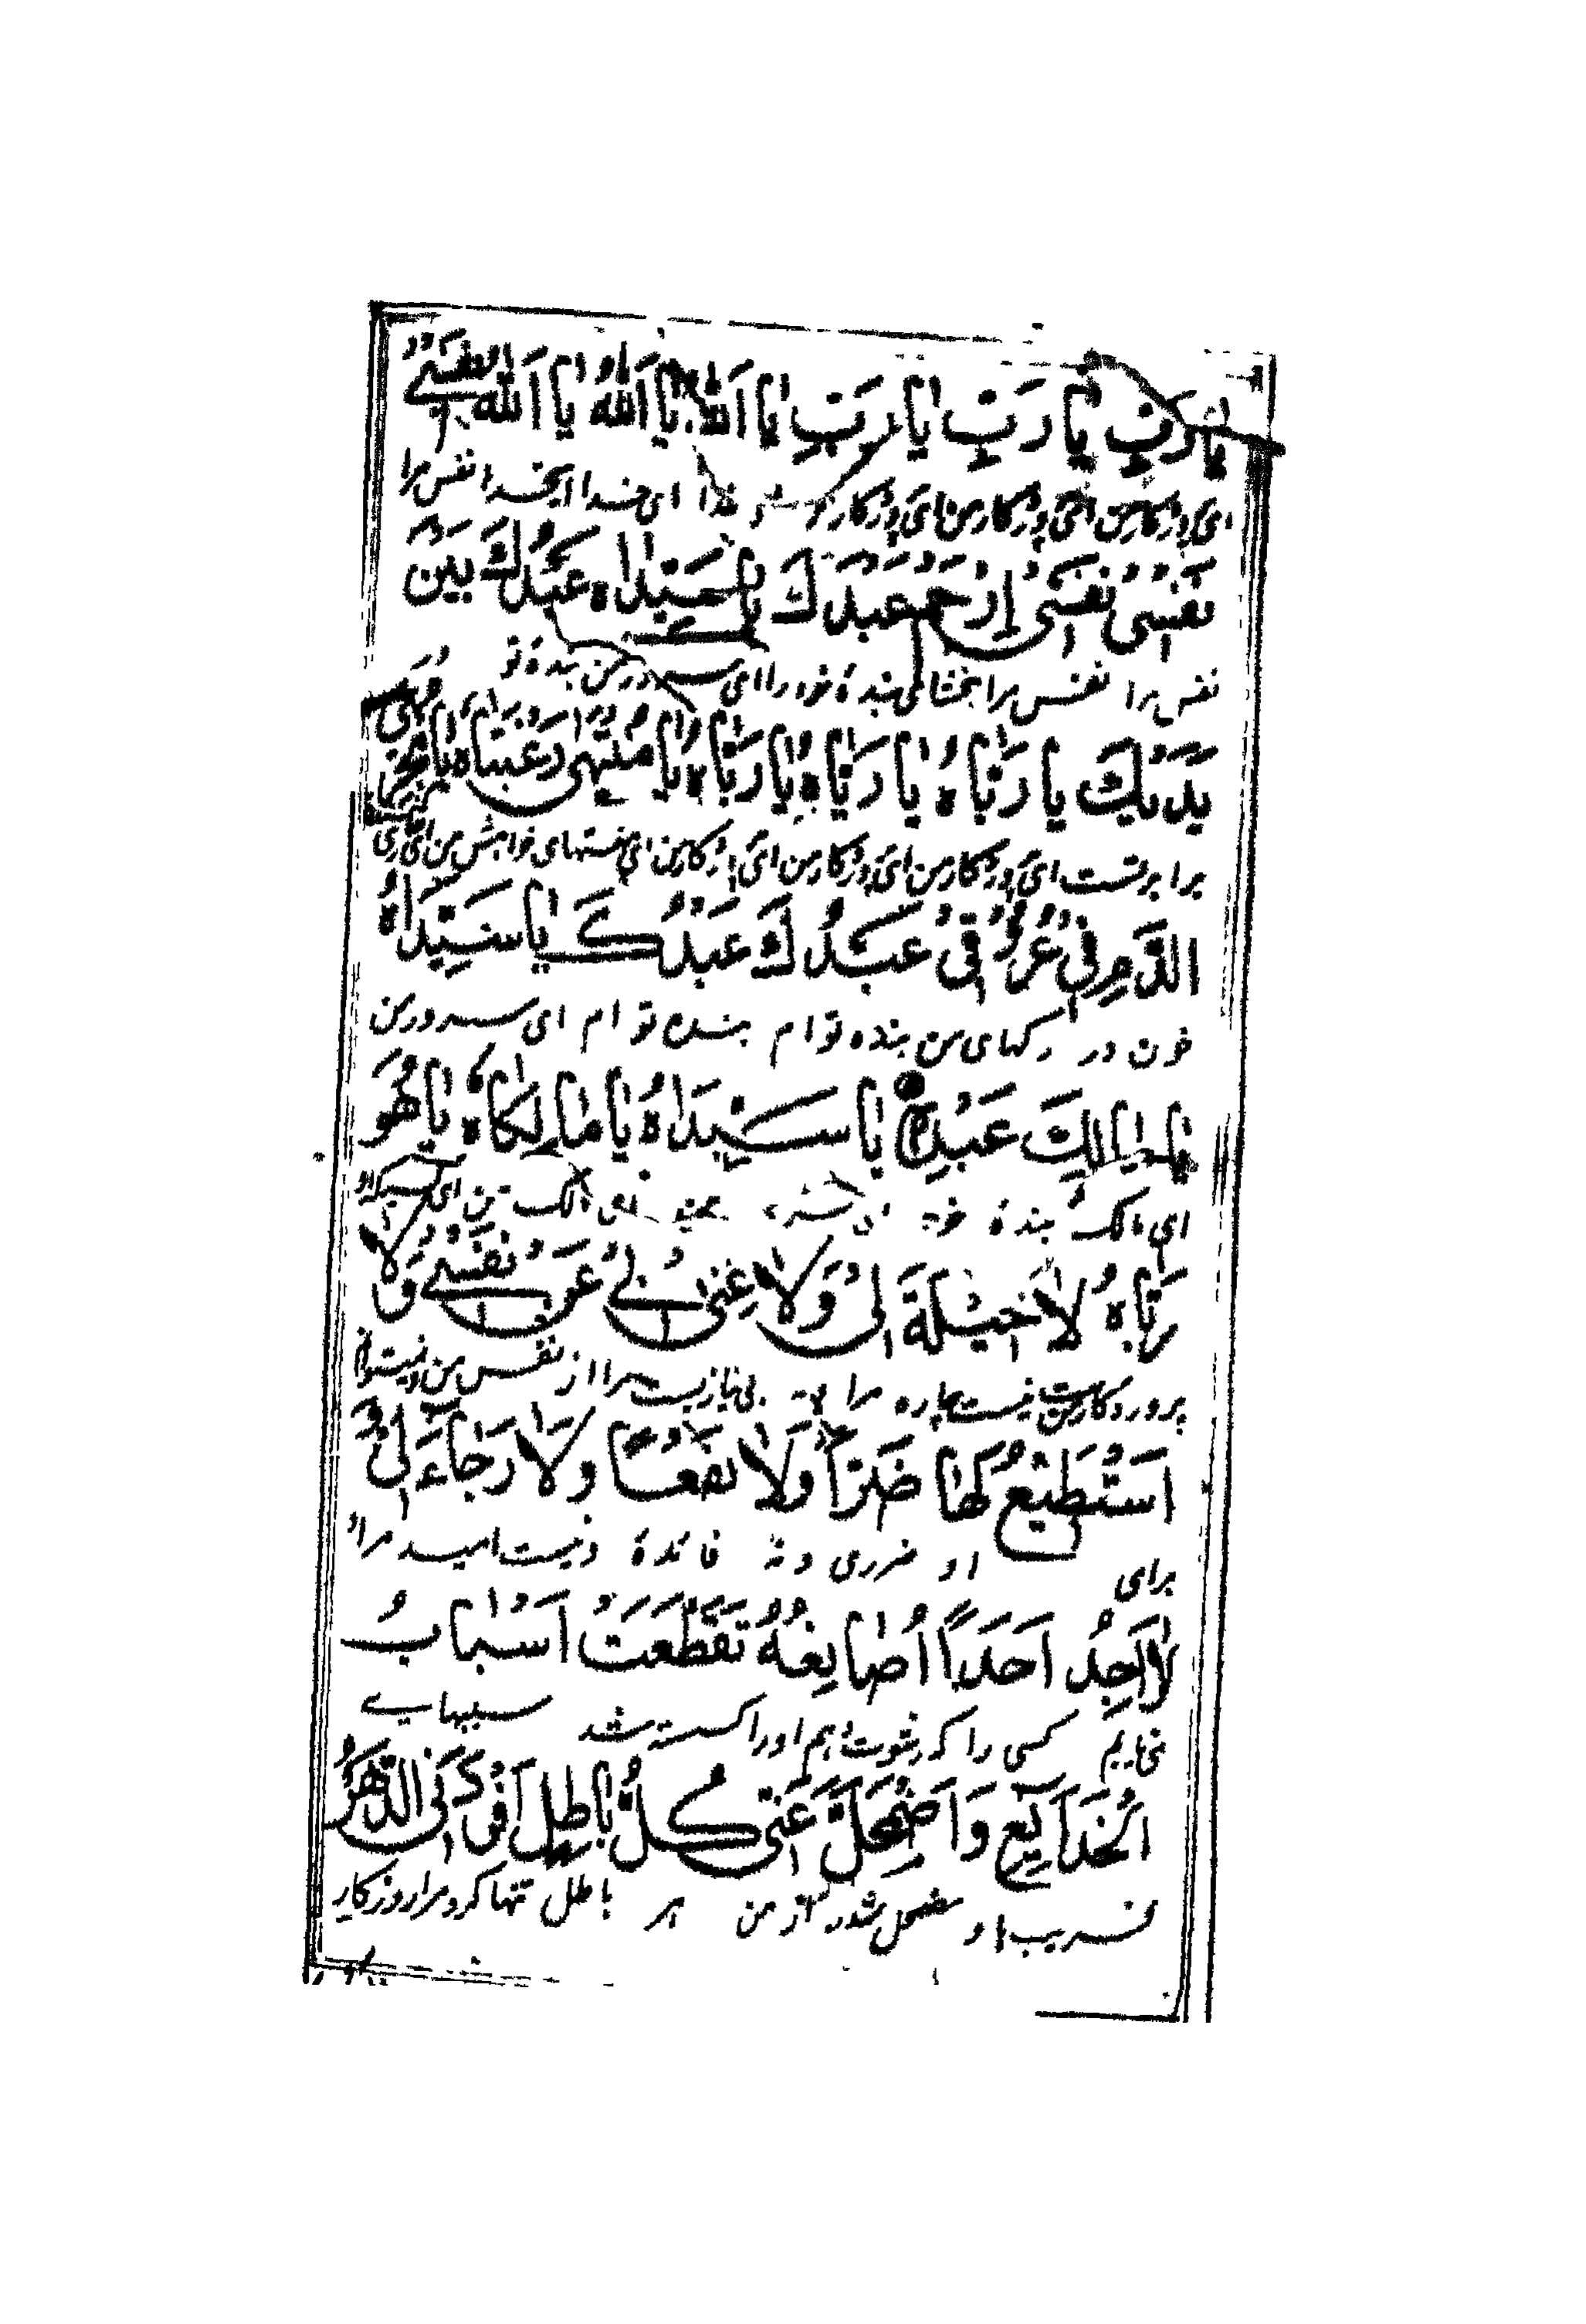 يَا رَبِّ يَا رَبِّ يَا رَبِّ يَا اَللّٰهُ يَا اَللّٰهُ يَا اَللّٰهُ نَفْسِیْ
ای پروردگار من ای پروردگار من ای پروردگار من خدا ای خدا ایخدا نفس مرا
نَفْسِیْ نَفْسِیْ اِرْحَمْ عَبْدَكَ يَا سَيِّدَاهُ عَبْدُكَ بَيْنَ
نفس مرا نفس مرا بخشای بندهٔ خود را ای سرور من بندهٔ تو
يَدَيْكَ يَا رَبَّاهُ يَا رَبَّاهُ يَا رَبَّاهُ يَا مُنْتَهٰى رَغْبَتَاهُ يَا مُجْرِیَ
برابر تست ای پروردگار من ای پروردگار من ای پروردگار من ای منتهای خواهش من ای جاری
الدَّمِ فِیْ عُرُوْقِیْ عَبْدُكَ عَبْدُكَ يَا سَيِّدَاهُ
خون در رگهای من بنده تو ام بنده تو ام ای سرور من
يَا مَالِكَ عَبْدِهٖ يَا سَيِّدَاهُ يَا مَالِكَاهُ يَا هُوَ
ای مالک بندهٔ خود ای مالک من ای
رَبَّاهُ لَا حِيْلَةَ لِیْ وَلَا غِنٰى بِیْ عَنْ نَفْسِیْ وَلَا
پروردگار من نیست چاره مرا و نه بی نیازیست مرا از نفس من و نمیتوانم
اَسْتَطِيْعُ لَهَا ضَرًّا وَلَا نَفْعًا وَلَا رَجَاءَ لِیْ
برای او ضرری و نه فائدهٔ و نیست امید مرا و
لَا اَجِدُ اَحَدًا اُصَانِعُهُ تَقَطَّعَتْ اَسْبَابُ
نمی یابم کسی را که رشوت دهم او را گسسته شد سببهای
الْخَدَايِعِ وَاضْمَحَلَّ عَنِّیْ كُلُّ بَاطِلٍ اَفْرَدَنِی الدَّهْرُ
فریب او مضمحل شد از من هر باطل تنها کرد مرا روزگار